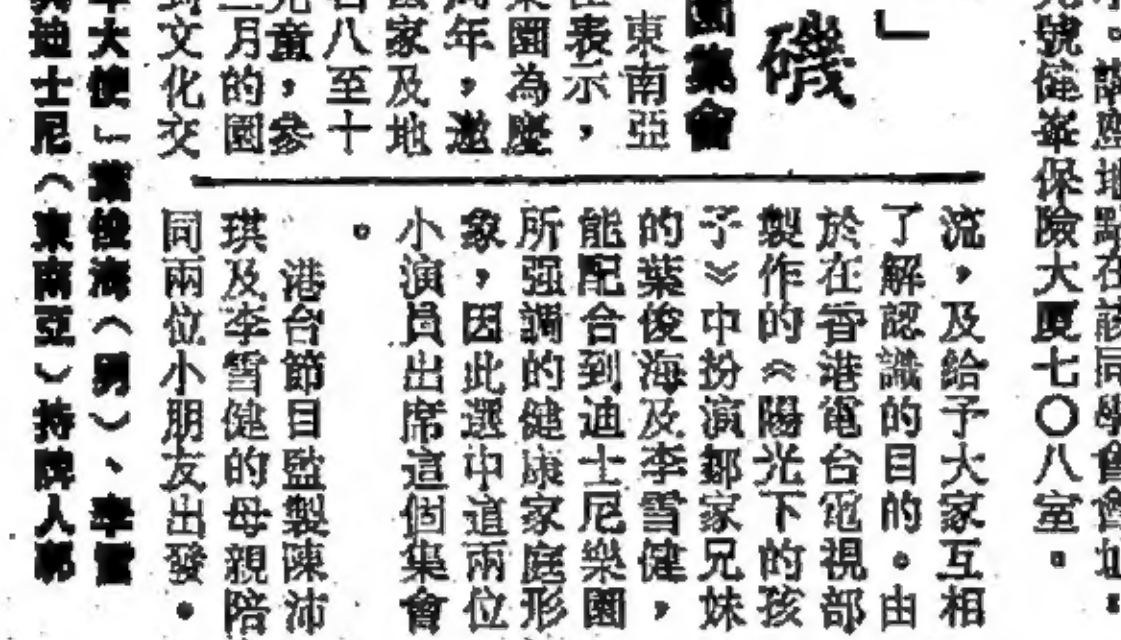 小。講座地點在該同學會會址。
九號健峯保險大厦七〇八室。
」
磯
園集會
東南亞
表示,
樂園為慶
周年,邀
家及地
百八至十
兒童,參
二月的園
到文化交
流,及給予大家互相
了解認識的目的。由
於在香港電台電視部
製作的《陽光下的孩
子》中扮演鄒家兄妹
的葉俊海及李雪健,
能配合到迪士尼樂園
所强調的健康家庭形
象,因此選中這兩位
小演員出席這個集會
。
港台節目監製陳沛
琪及李雪健的母親陪
同兩位小朋友出發。
大使」葉俊海(男)、李雪
迪士尼(東南亞)持牌人